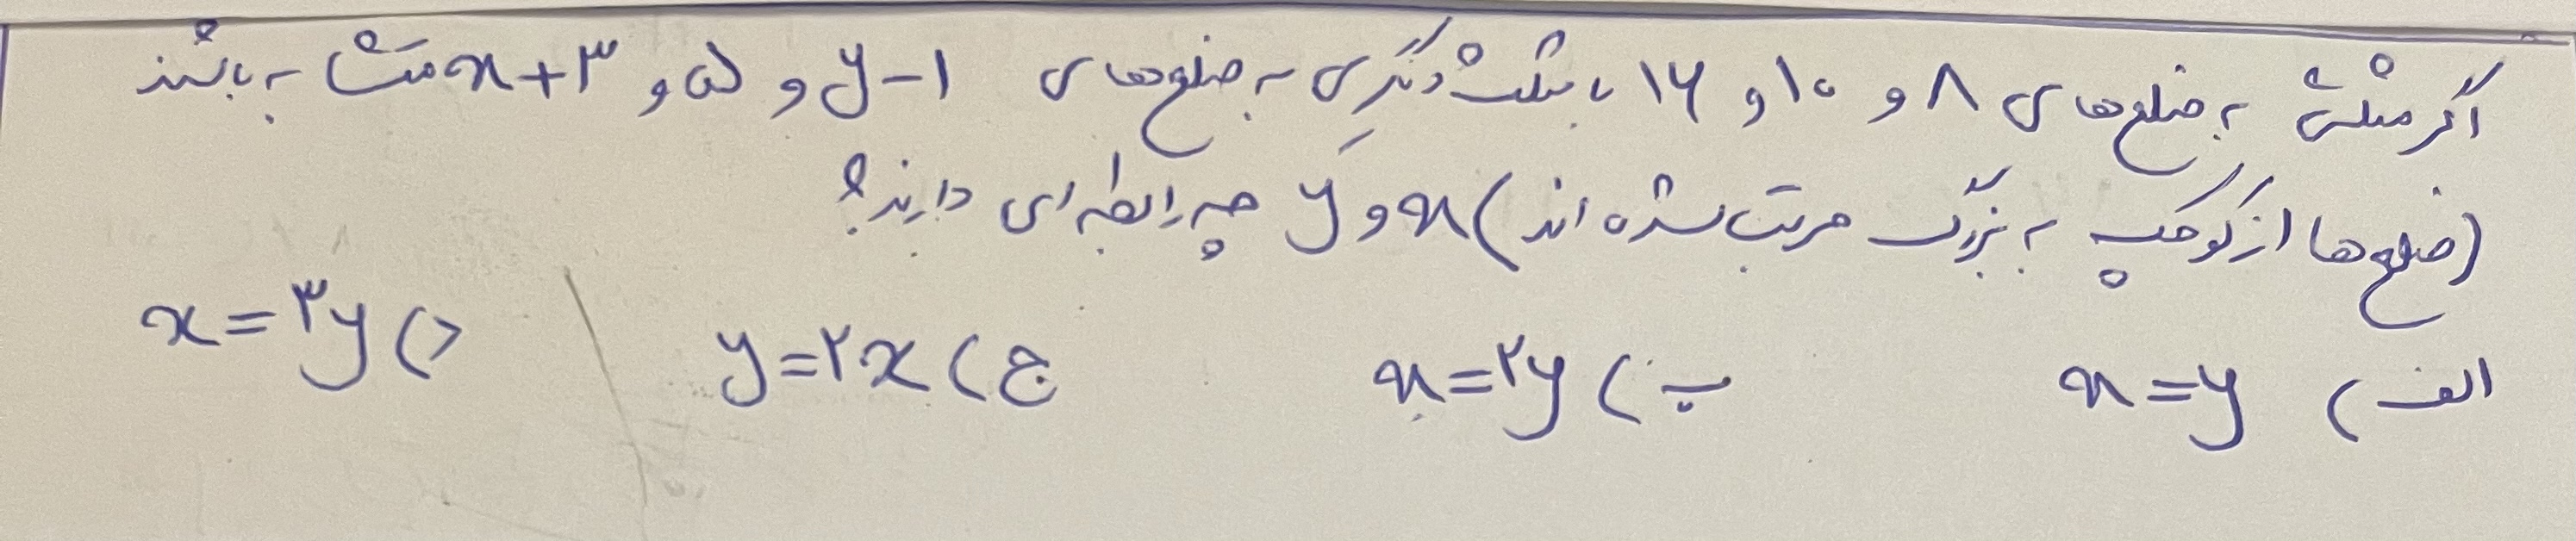 اگر مثلثی به ضلع‌های ۸ و ۱۰ و ۱۶ با مثلث دیگری به ضلع‌های y-۱ و ۵ و x+۳ متشابه باشند
(ضلع‌ها از کوچک به بزرگ مرتب شده‌اند) x و y چه رابطه‌ای دارند؟
الف) x=y ب) x=۲y ج) y=۲x د) x=۳y